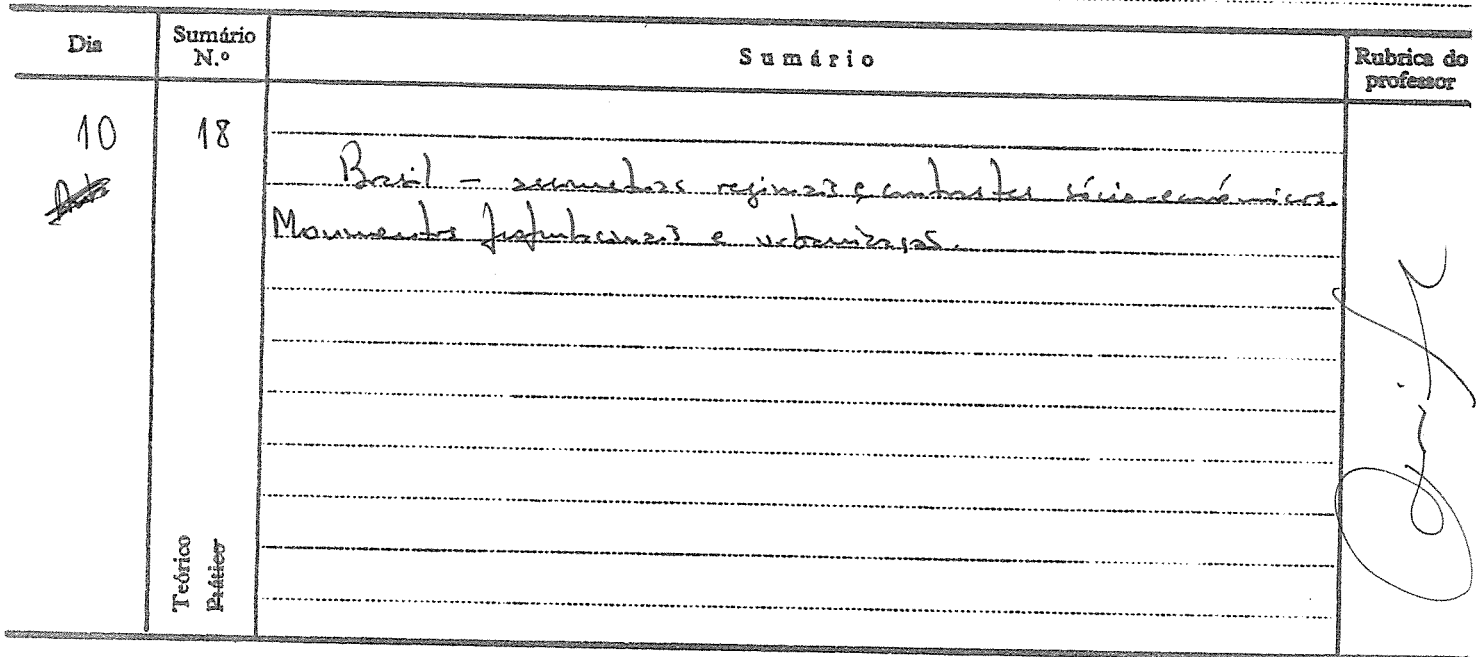 Dia
Sumário N.º
Sumário
Rubrica do professor
10
18
Brasil – assimetrias regionais e contrastes sócio-económicos.
Movimentos populacionais e urbanização.
Teórico
Prático